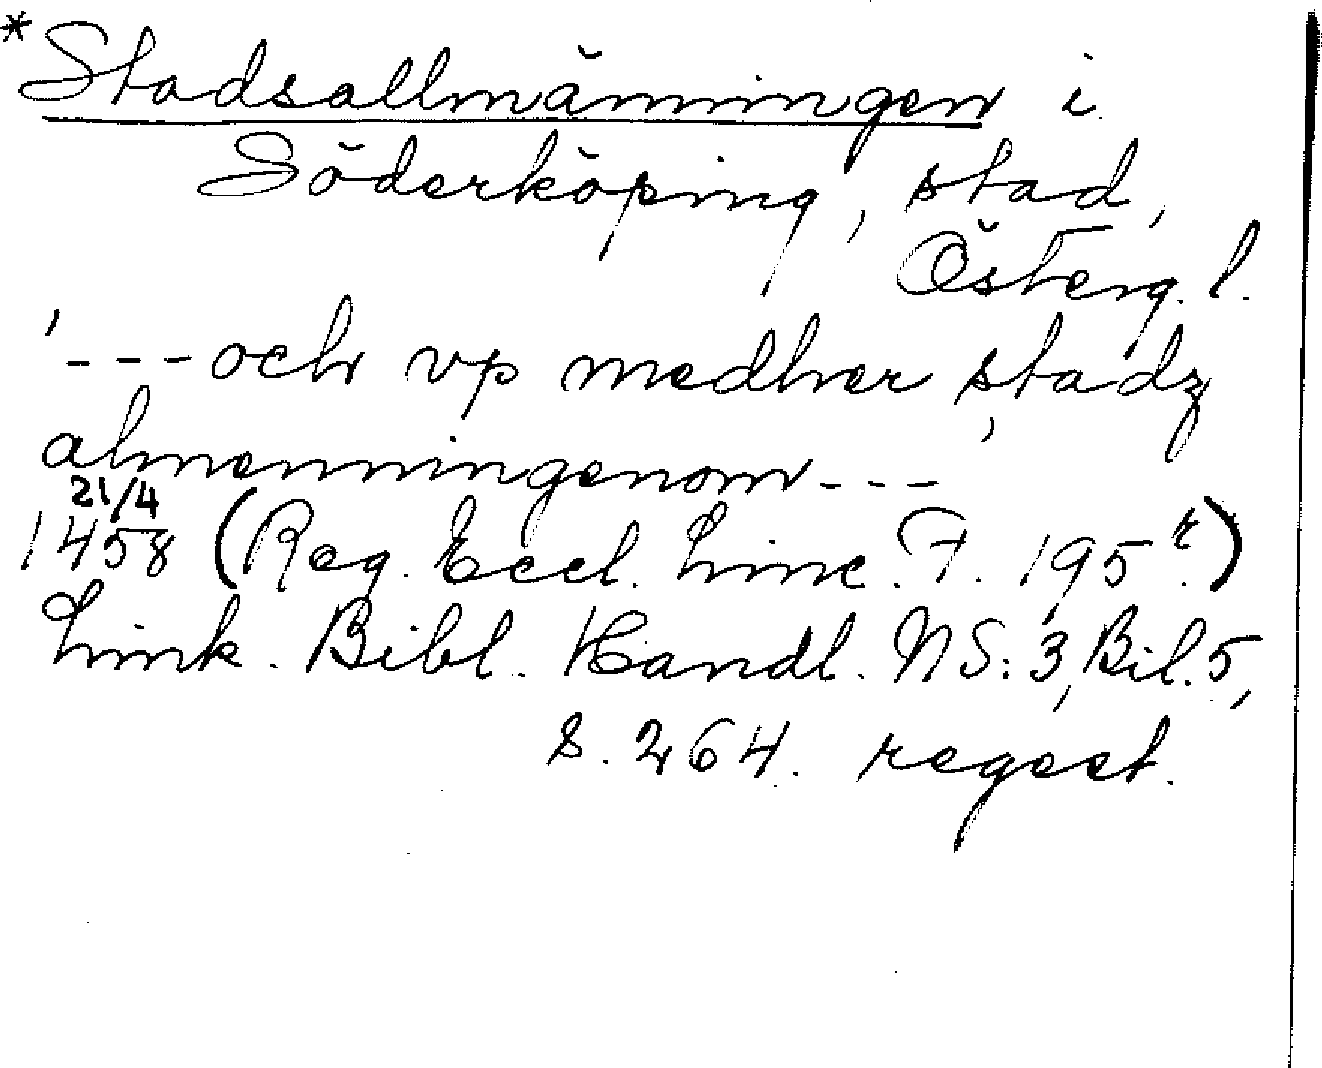 *Stadsallmänningen i
Söderköping, stad,
Österg. l.
'---och vp medher stadz
almenningenom---'
21/4
1458 (Reg. Eccl. Linc. F. 195 r.)
Link. Bibl. Handl. NS: 3, Bil. 5,
s. 264. regest.